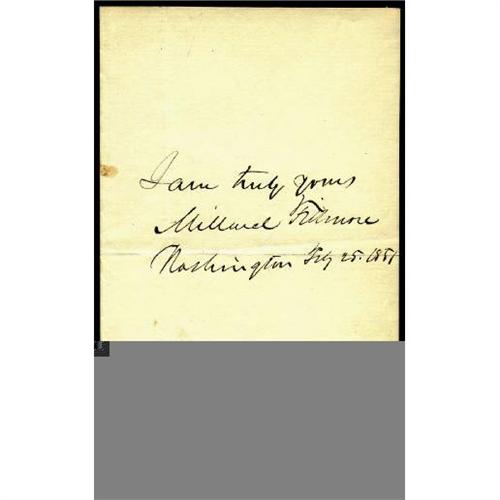 I am truly yours
Millard Fillmore
Washington Feby 25. 1851